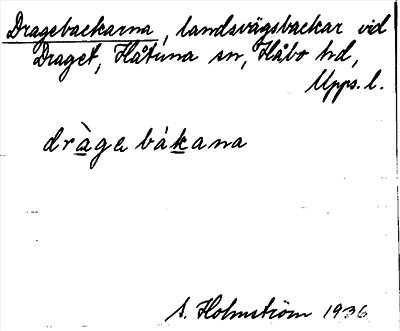 Dragebackarna, landsvägsbackar vid
Draget, Håtuna sn, Håbo hd,
Upps. l.
dràga bákana
S. Holmström 1936